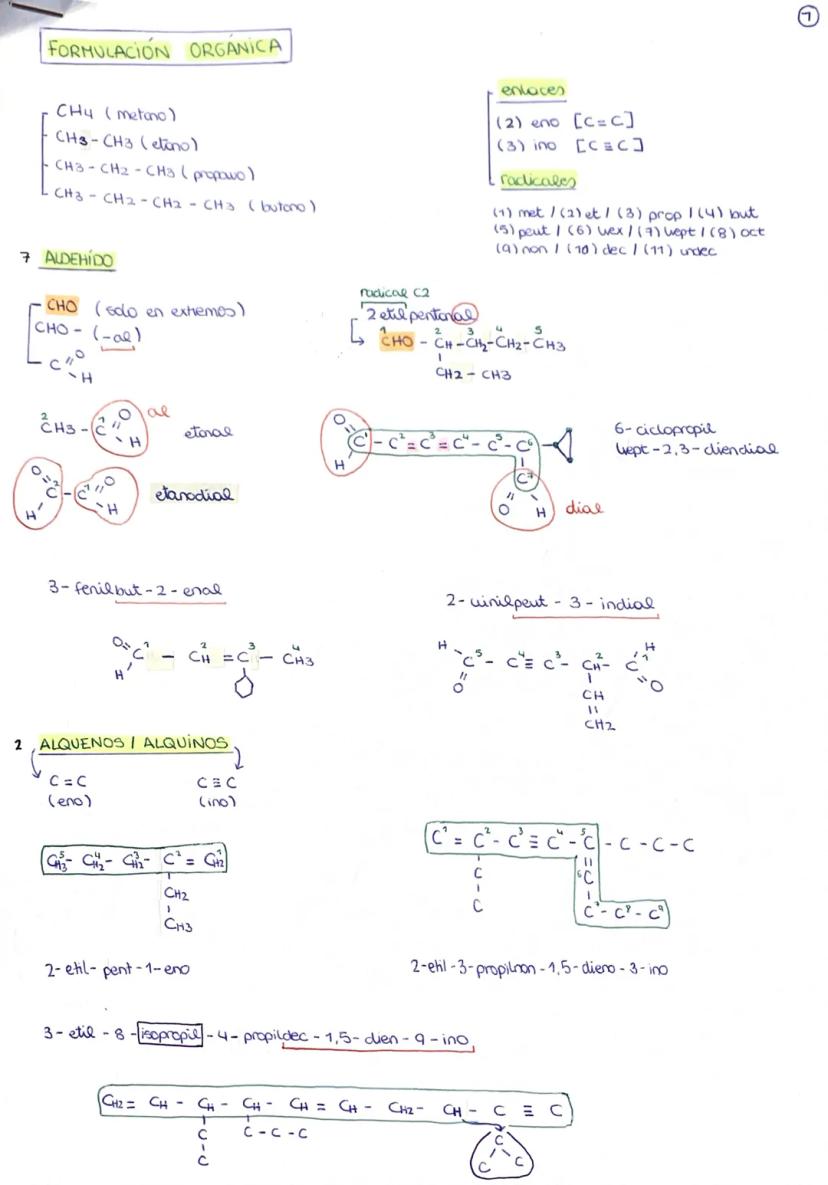 7
FORMULACIÓN ORGÁNICA
CH4 (metano)
CH3 - CH3 (etano)
CH3 - CH2 - CH3 (propano)
CH3 - CH2 - CH2 - CH3 (butano)
enlaces
(2) eno [C=C]
(3) ino [C≡C]
radicales
(1) met / (2) et / (3) prop / (4) but
(5) pent / (6) hex / (7) hept / (8) oct
(9) non / (10) dec / (11) undec
7 ALDEHÍDO
CHO (solo en extremos)
CHO - (-al)
C=O
H
radical C2
2 etil pentanal
1 2 3 4 5
CHO - CH - CH2 - CH2 - CH3
CH2 - CH3
2 1 O al
CH3 - C H etanal
O 2 1 O
H C - C H etanodial
O
C1 - C2 = C3 = C4 - C5 - C6
H
C7
O H dial
6 - ciclopropil
hept - 2,3 - diendial
3 - fenilbut - 2 - enal
O 1 2 3 4
H C - CH = C - CH3
2 - vinilpent - 3 - indial
H 5 4 3 2 1 H
C - C ≡ C - CH - C
O O
CH
CH2
2 ALQUENOS / ALQUINOS
C = C C ≡ C
(eno) (ino)
5 4 3 2 1
CH3 - CH2 - CH2 - C = CH2
CH2
CH3
2 - etil - pent - 1 - eno
C1 = C2 - C3 ≡ C4 - C5 - C - C - C
C 6C
C C7 - C8 - C9
2 - etil - 3 - propilnon - 1,5 - dieno - 3 - ino
3 - etil - 8 - isopropil - 4 - propildec - 1,5 - dien - 9 - ino
CH2 = CH - CH - CH - CH = CH - CH2 - CH - C ≡ C
C C - C - C C
C C C